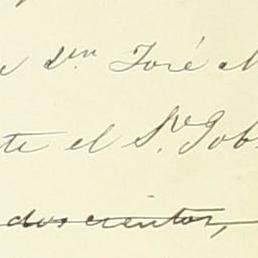 e Don José M
te el Sr. Gob
doscientos,